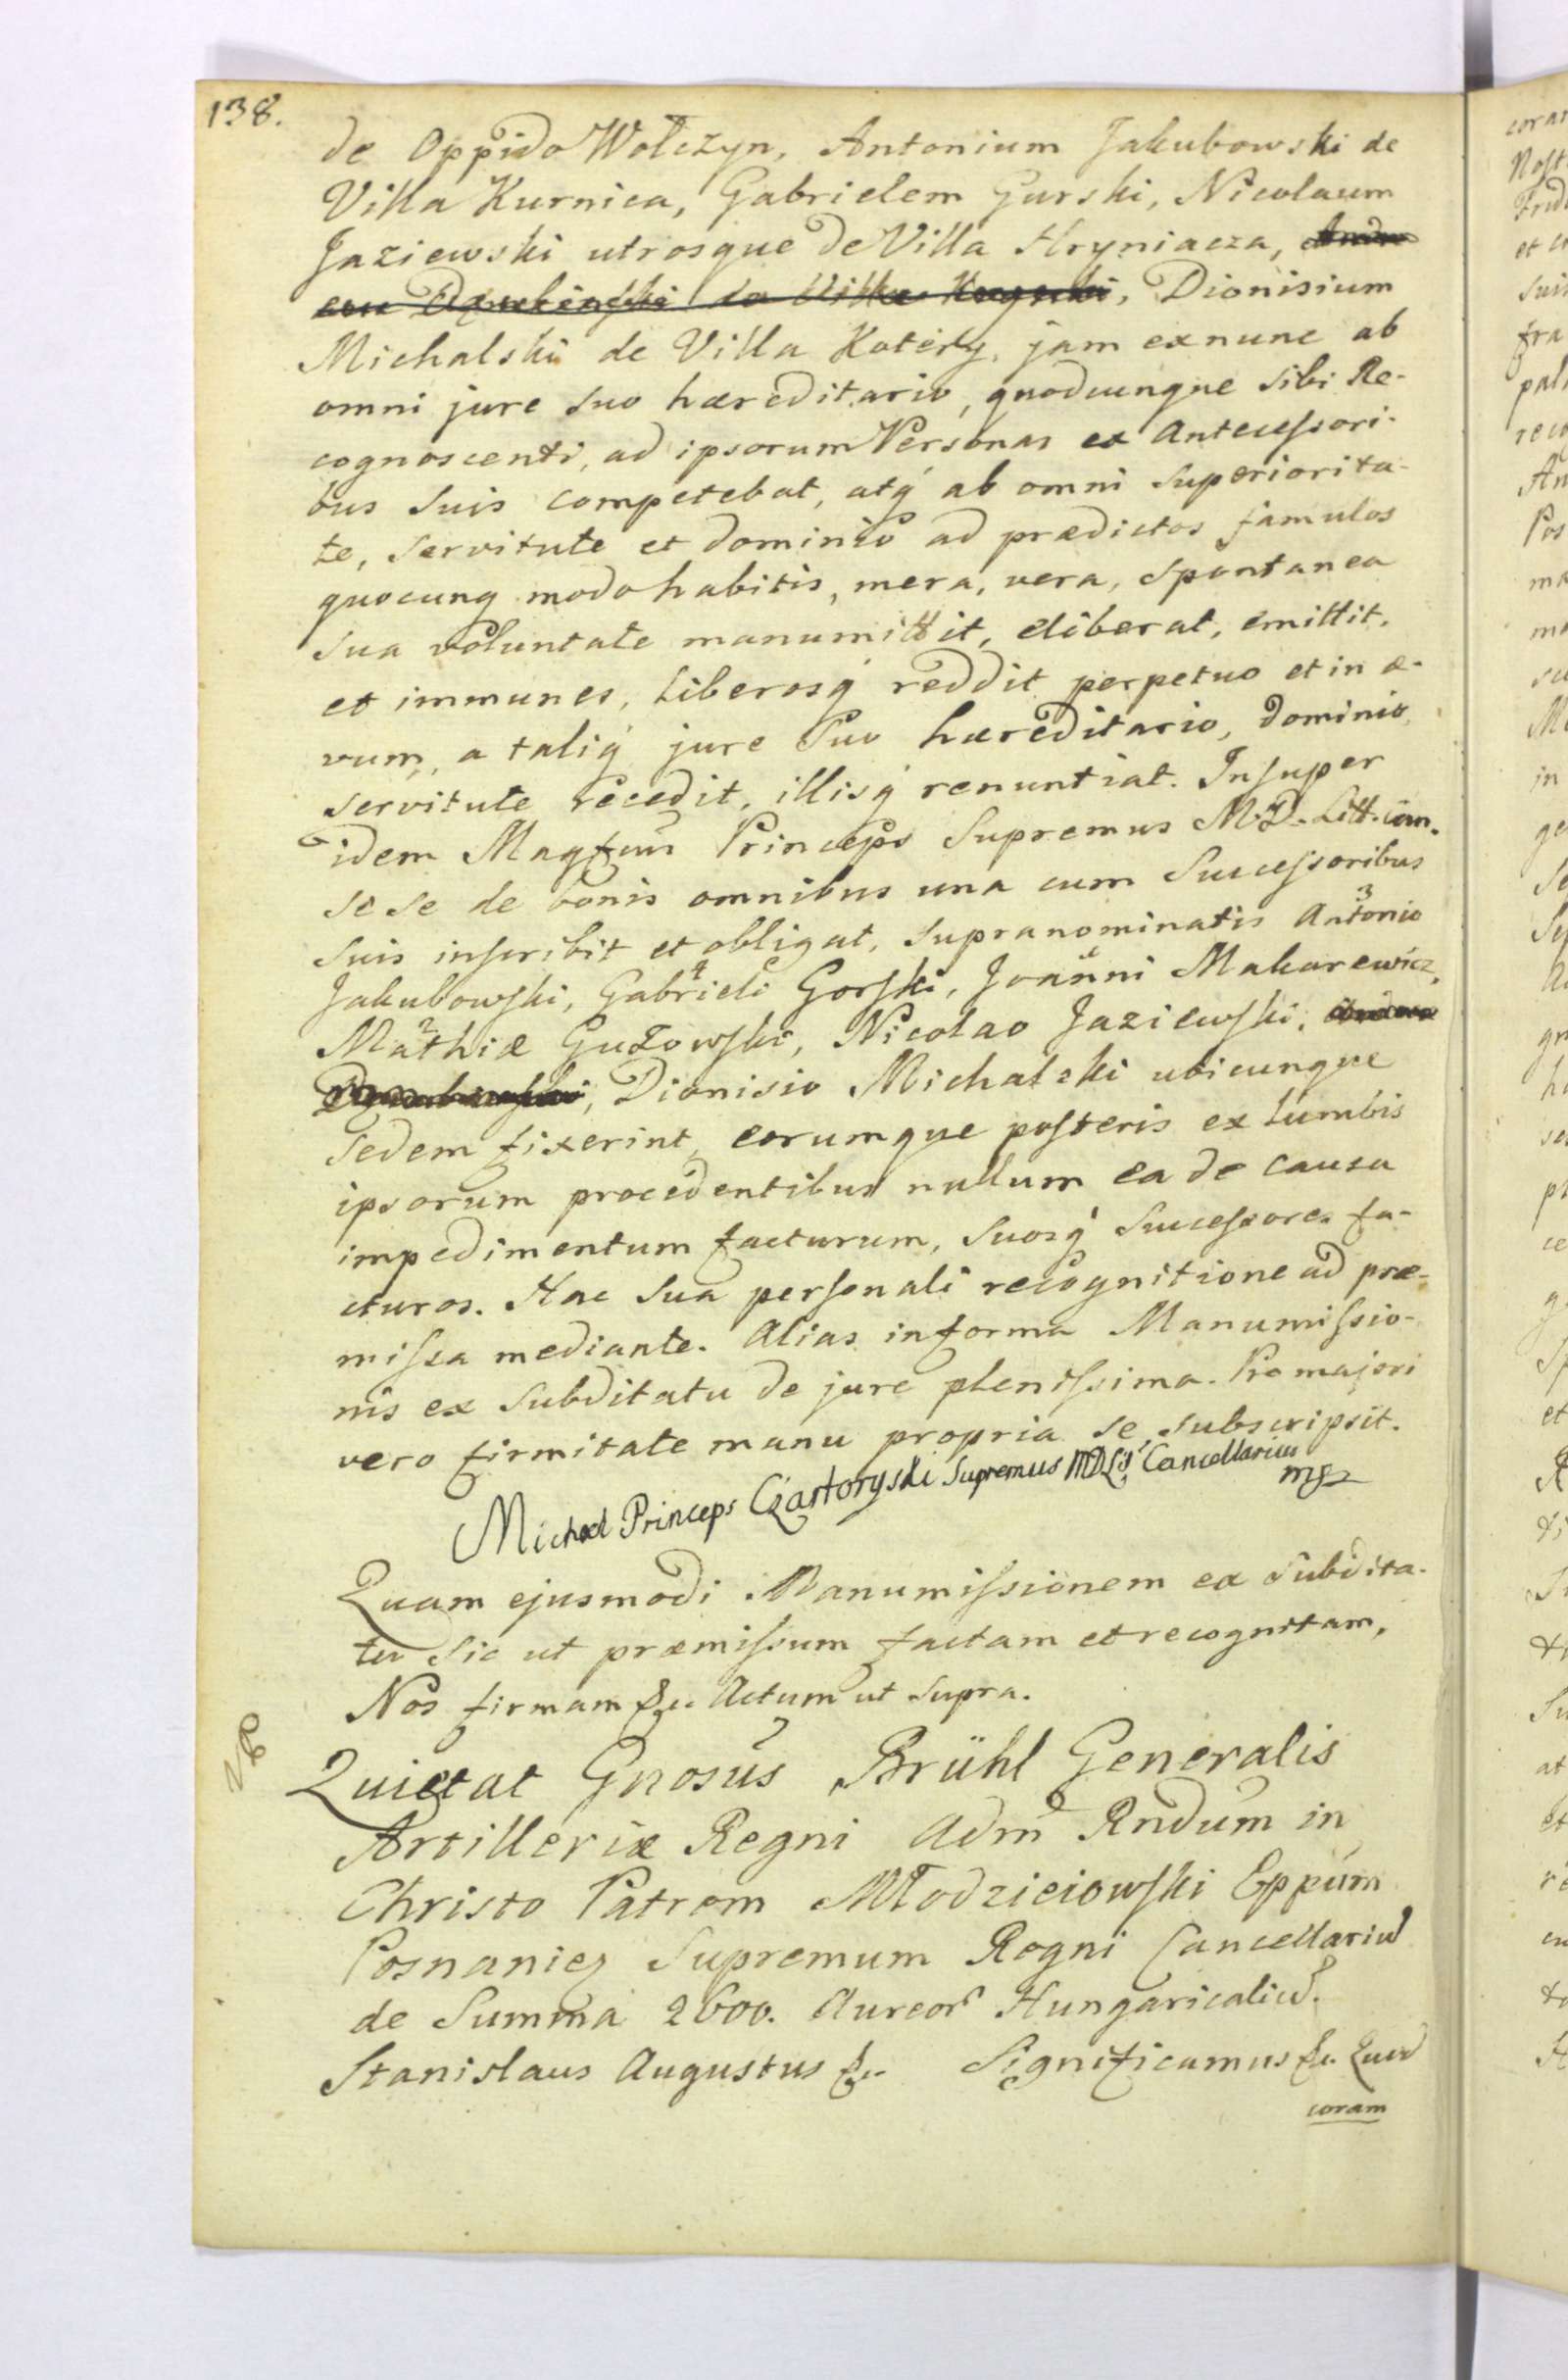 138.
de Oppido Wołczyn, Antonium Jakubowski de
Villa Kurnica, Gabrielem Gurski, Nicolaum
Jaziewski utrosque de Villa Hryniacza,
Dionisium
Michalski de Villa Kotery, jam exnunc ab
omni jure suo hæreditario, quodcunque sibi Re-
cognoscenti, ad ipsorum Personas ex Antecessori-
bus suis competebat, atq́ ab omni superiorita-
te, servitute et dominio ad prædictos famulos
quocunq modo habitis, mera, vera, spontanea
sua voluntate manumittit, eliberat, emittit,
et immunes, Liberosq́ reddit perpetuo et in æ-
vum, a taliq́ jure suo hæreditario, dominio,
servitute recedit, illisq́ renuntiat. Insuper
idem Magfcus Princeps Supremus M.D. Litt. Can.
sese de bonis omnibus una cum Successoribus
suis inscribit et obligat, supranominatis Antonio 3
Jakubowski, Gabrieli 4 Gorski, Joanni Makarewicz,
Mathiæ 2 Guzowski, Nicolao Jaziewski,
Dionisio Michalski ubicunque
sedem fixerint, eorumque posteris ex lumbis
ipsorum procedentibus nullum ea de causa
impedimentum facturum, suosq́ Successores fa-
cturos. Hac sua personali recognitione ad præ-
missa mediante. Alias in forma Manumissio-
nis ex subditatu de jure plenissima. Pro majori
vero firmitate manu propria se subscripsit.
Michael Princeps Czartoryski Supremus MDL Cancellarius
mp
Quam ejusmodi Manumissionem ex subdita-
tu sic ut præmissum factam et recognitam,
Nos firmam &c. Actum ut supra.
Quietat Gnosus Brühl Generalis
Artilleriæ Regni Adm Rndum in
Christo Patrem Młodzieiowski Eppum
Posnanien Supremum Regni Cancellarium
de Summa 2600. Aureor Hungaricalium.
Stanislaus Augustus &c. Significamus &c. Quod
coram